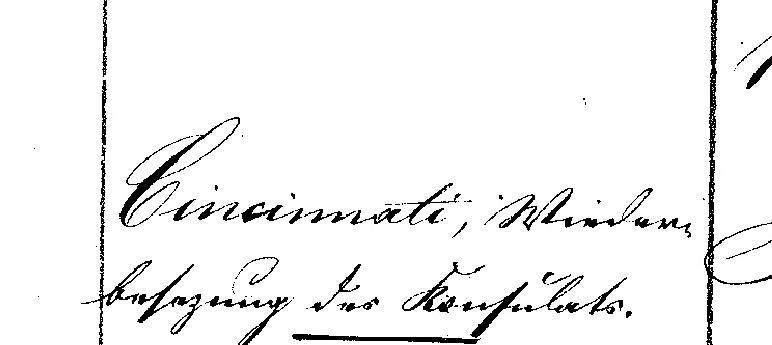 Cincinnati, Wieder-
besezung des Konsulats.